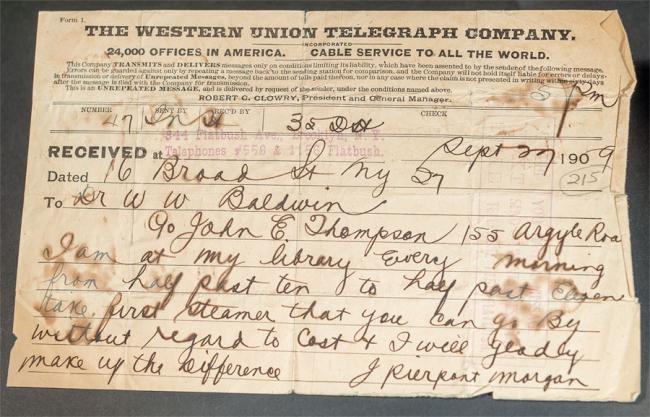 Form 1.
THE WESTERN UNION TELEGRAPH COMPANY.
INCORPORATED
24,000 OFFICES IN AMERICA. CABLE SERVICE TO ALL THE WORLD.
This Company TRANSMITS and DELIVERS messages only on conditions limiting its liability, which have been assented to by the sender of the following message.
Errors can be guarded against only by repeating a message back to the sending station for comparison, and the Company will not hold itself liable for errors or delays
in transmission or delivery of Unrepeated Messages, beyond the amount of tolls paid thereon, nor in any case where the claim is not presented in writing within sixty days
after the message is filed with the Company for transmission.
This is an UNREPEATED MESSAGE, and is delivered by request of the sender, under the conditions named above.
ROBERT C. CLOWRY, President and General Manager.
NUMBER SENT BY REC'D BY CHECK
47
344 Flatbush Ave.
Telephones #558 & Flatbush.
RECEIVED at Sept 27 1909
Dated 16 Broad St Ny 27
215
To Dr W W Baldwin
John E Thompson 155 Argyle Roa
I am at my library Every morning
from half past ten to half past Eleven
take first steamer that you can go By
without regard to Cost & I will gladly
make up the Difference J pierpont morgan